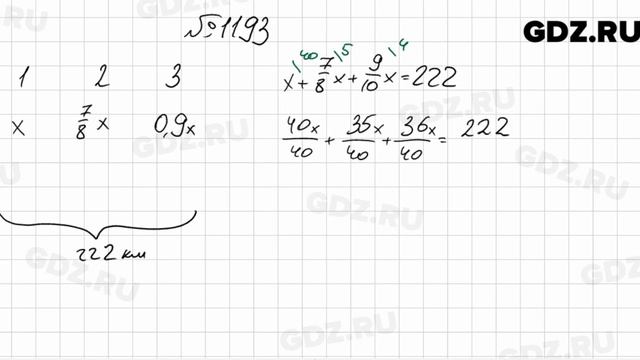 №1193
GDZ.RU
1 2 3
x 7/8 x 0,9x
222 км
|40 |5 |4
x + 7/8 x + 9/10 x = 222
40x/40 + 35x/40 + 36x/40 = 222
GDZ.RU
GDZ.RU
GDZ.RU
GDZ.RU
GDZ.RU
GDZ.RU
GDZ.RU